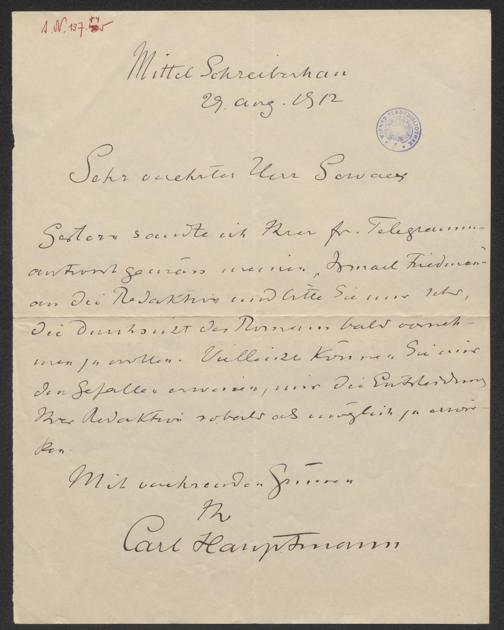 Mittel Schreiberhau
29. Aug. 1912
Sehr verehrter Herr Servaes
Gestern sandte ich Ihrer fr. Telegramm-
antwort gemäss meinen „Ismael Friedmann"
an die Redaktion und bitte Sie nur sehr,
die Durchsicht des Romans bald vorneh-
men zu wollen. Vielleicht können Sie mir
den Gefallen erweisen, mir die Entscheidung
Ihrer Redaktion sobald als möglich zu erwir-
ken.
Mit verehrenden Grüssen
Ihr
Carl Hauptmann